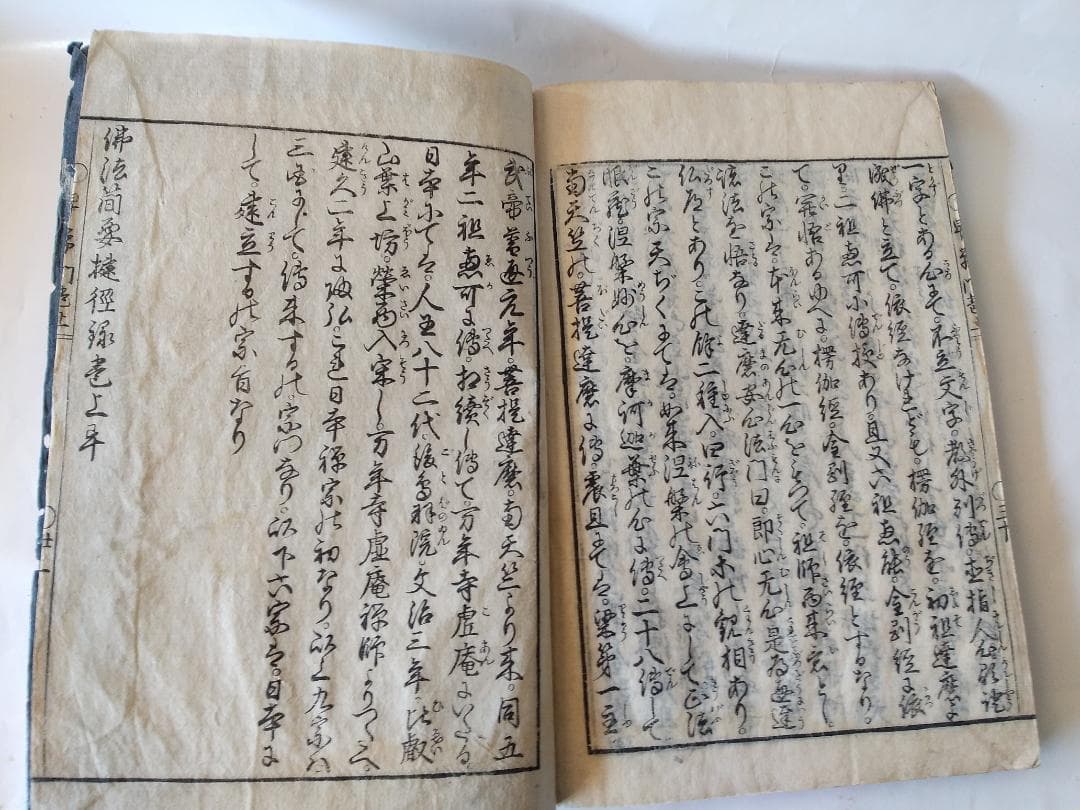 一字とある心也。不立文字。教外別傳。直指人心。見性
成佛と立て。依經なけれども。楞伽經を。初祖達磨よ
り二祖惠可小傳授あり。且又六祖惠能。金剛經に依
て。開悟あるゆへに。楞伽經。金剛經を。依經とするなり。
この宗は。本來无心の一心をもつて。祖師西來宗とし
諸法を悟なり。達磨安心法門曰。即心无心是為通達
仏道とあり。この餘二種入。四行。六門等の觀相あり。
この宗天ぢくにては。如来涅槃の會上にして正法
眼蔵。涅槃妙心を。摩訶迦葉の心に傳。二十八傳して
南天竺の。菩提達磨に傳。震旦にては。梁第一主。
武帝普通元年。菩提達磨。南天竺より来。同五
年二祖惠可に傳。相續し傳て。万年寺虚庵にいたる。
日本小ては。人王八十二代。後鳥羽院。文治三年。比叡
山葉上坊。榮西入宋し。万年寺虚庵禅師よりつたへ。
建久二年に歸弘。これ日本禅宗の初なり。以上九宗ハ。
三国にして。傳来するの。宗門なり。以下六宗は。日本に
して。建立するの宗旨なり
佛法簡要捷徑録巻上畢
三十
廿一